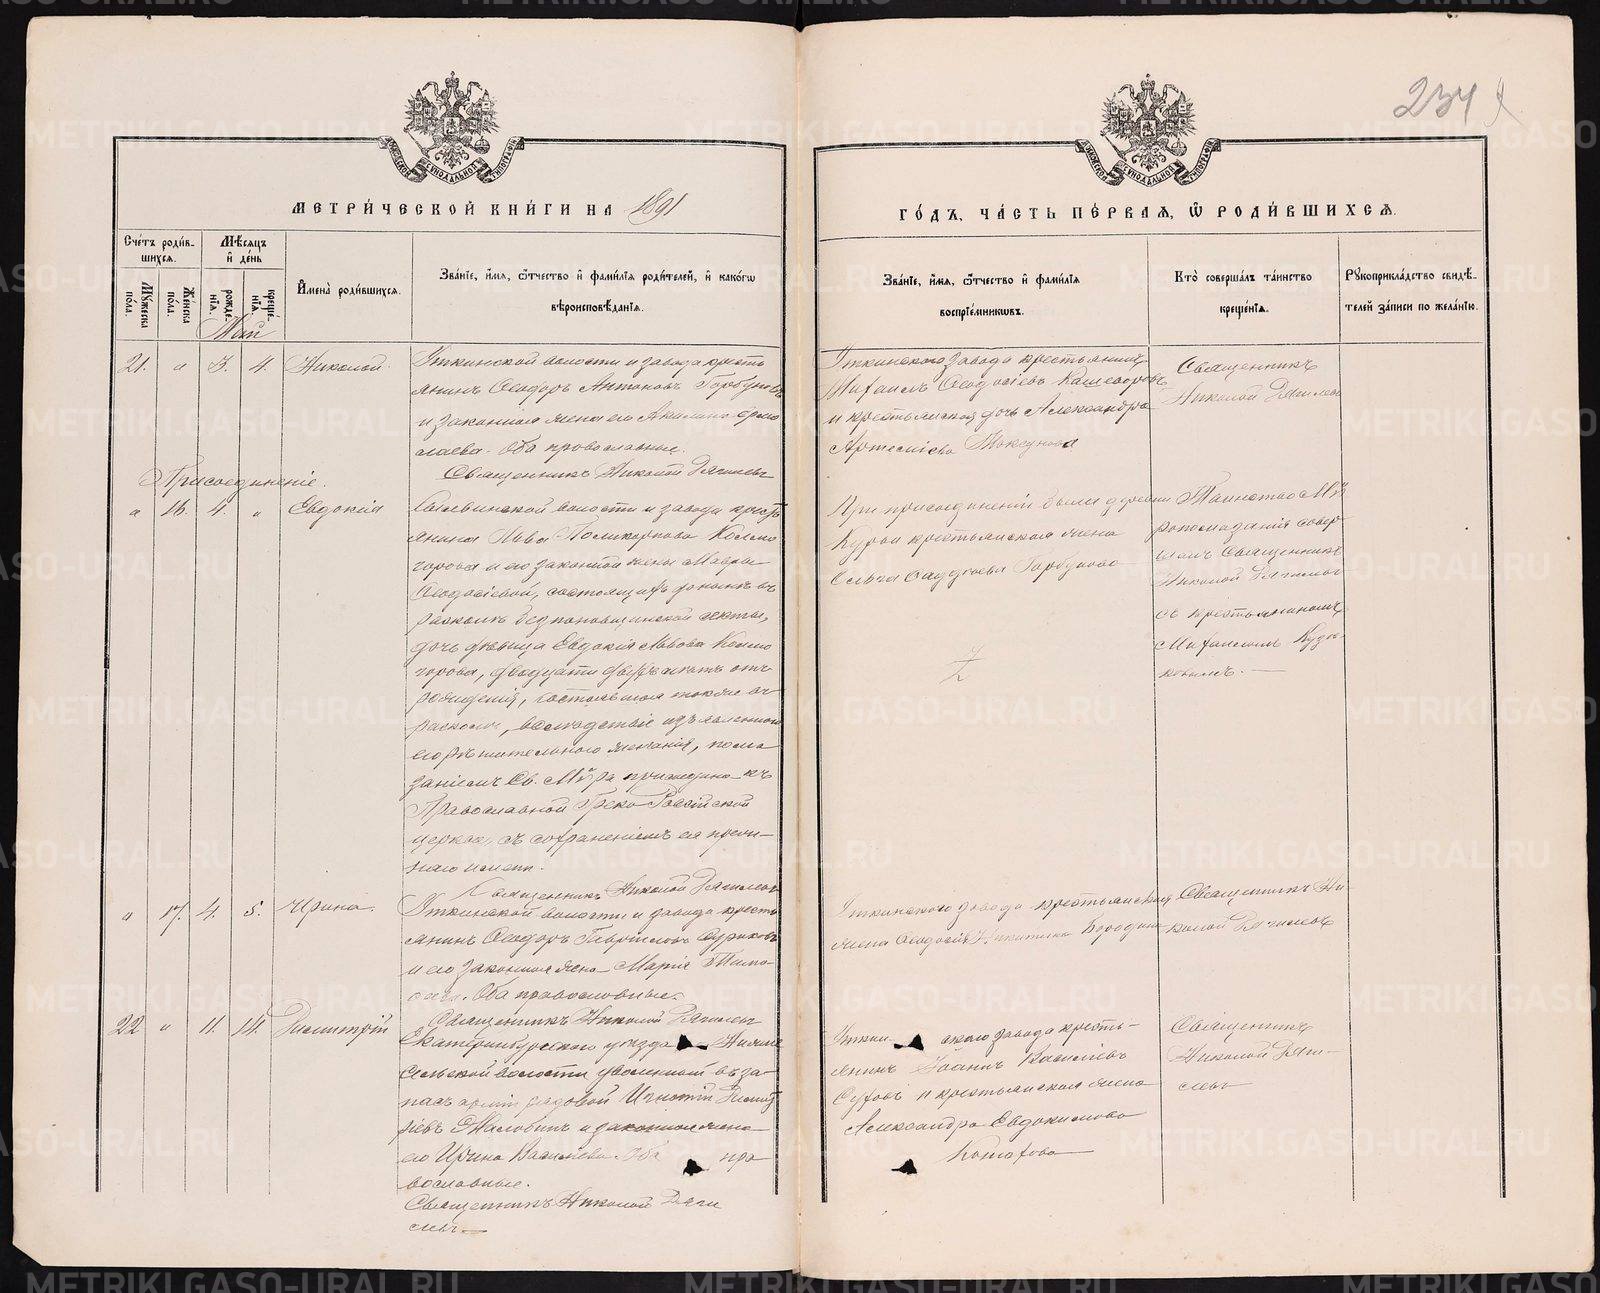 234
МЕТРИ́ЧЕСКОЙ КНИ́ГИ НА 1891
ГО́ДЪ, ЧА́СТЬ ПЕ́РВАЯ, Ѿ РОДИ́ВШИХСЯ.
Сче́тъ роди́в-
шихся.
Мѣ́сяцъ
и҆ де́нь
Мꙋ́жеска по́ла.
Же́нска по́ла.
рожде́-
нїя.
креще́-
нїя.
И҆мена̀ роди́вшихся.
Зва́нїе, и҆́мя, ѻ҆́тчество и҆ фами́лїя роди́телей, и҆ како́гѡ
вѣроисповѣ́данїя.
Зва́нїе, и҆́мя, ѻ҆́тчество и҆ фами́лїя
воспрїе́мникѡвъ.
Кто̀ соверша́лъ та́инство
креще́нїя.
Рꙋкоприкла́дство свидѣ́-
телей за́писи по жела́нїю.
Май
21. " 3. 4. Николай.
Уткинской волости и завода кресть
янинъ Ѳеодоръ Антоновъ Горбуновъ
и законная жена его Акилина Ермо
лаева. Оба православные.
Священникъ Николай Дягилевъ
Уткинскаго завода крестьянинъ
Михаилъ Ѳеодосіевъ Кашеваровъ
и крестьянская дочь Александра
Артеміева
Священникъ
Николай Дягилевъ
Присоединеніе.
" 16. 4. " Евдокія
Сылвинской волости и завода кресть
янина Льва Поликарпова Колмо
горова и его законной жены Мавры
Ѳеодосіевой, состоящихъ въ
расколѣ безпоповщинской секты,
дочь дѣвица Евдокія Львова Колмо
горова, двадцати лѣтъ отъ
рожденія, состоявшая также въ
расколѣ, вслѣдствіе изъявленнаго
ею рѣшительнаго желанія, пома
заніемъ Св. Мѵра присоединена къ
Православной Греко-Россійской
церкви, съ сохраненіемъ ея преж-
няго имени.
Священникъ Николай Дягилевъ
При присоединеніи были деревни
Курьи крестьянская жена
Ольга Фаддѣева Горбунова
Таинство Мѵ
ропомазанія совер-
шалъ Священникъ
Николай Дягилевъ
съ крестьяниномъ
Михаиломъ Кузов-
" 17. 4. 5. Ирина.
Уткинской волости и завода кресть
янинъ Ѳеодоръ Гавріиловъ
и его законная жена Марія Тимо-
ѳеева. Оба православные.
Священникъ Николай Дягилевъ
Уткинскаго завода крестьянская
жена Ѳеодосія Никитина Бородина
Священникъ Ни-
колай Дягилевъ
22. " 11. 14. Димитрій
Екатеринбургскаго уѣзда
сельской волости уволенный въ за-
пасъ арміи рядовой Игнатій Димит
ріевъ Маловинъ и законная жена
его Ирина Васильева. Оба пра
вославные.
Священникъ Николай Дяги
левъ
Уткин скаго завода кресть-
янинъ Іоаннъ Васильевъ
Суховъ и крестьянская жена
Александра Евдокимова
Священникъ
Николай Дяги-
левъ